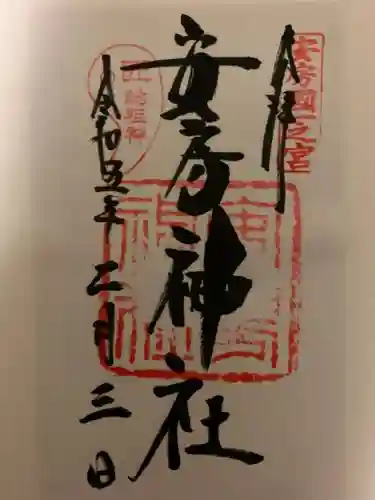 安房國一之宮
奉拝
安房神社
令和五年二月三日
安房神社